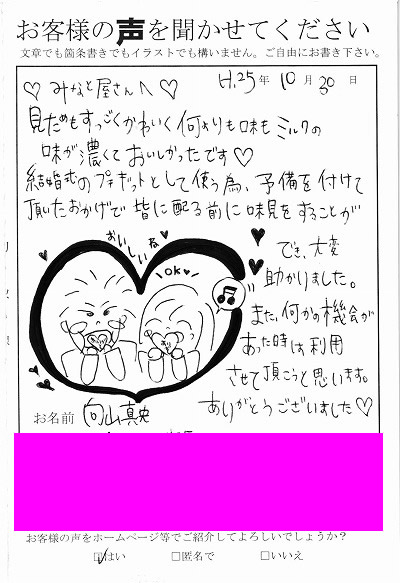 お客様の声を聞かせてください
文章でも箇条書きでもイラストでも構いません。ご自由にお書き下さい。
H.25年10月30日
♡みなと屋さんへ♡
見ためもすっごくかわいく何よりも味もミルクの
味が濃くておいしかったです♡
結婚式のプチギットとして使う為、予備を付けて
頂いたおかげで皆に配る前に味見をすることが
でき、大変
助かりました。
また、何かの機会が
あった時は利用
させて頂こうと思います。
ありがとうございました♡
おいしいね
OK♥
お名前 向山真央
お客様の声をホームページ等でご紹介してよろしいでしょうか？
☑はい □匿名で □いいえ